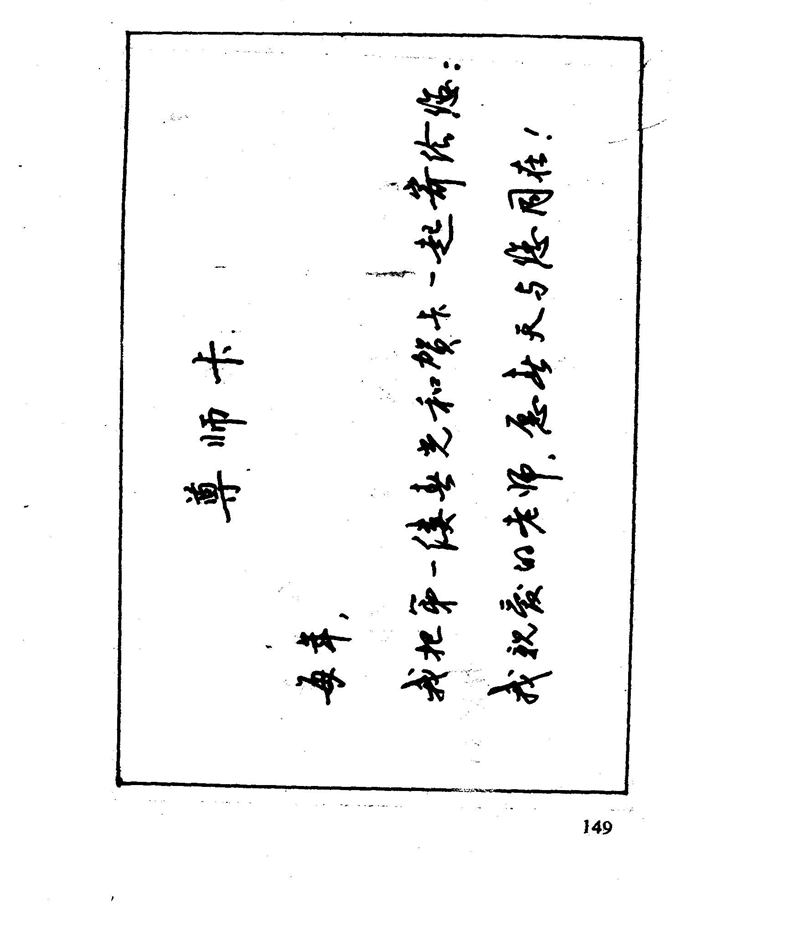 尊师卡
每年,
我把第一缕春光和贺卡一起寄给您:
我亲爱的老师,愿春天与您同在!
149